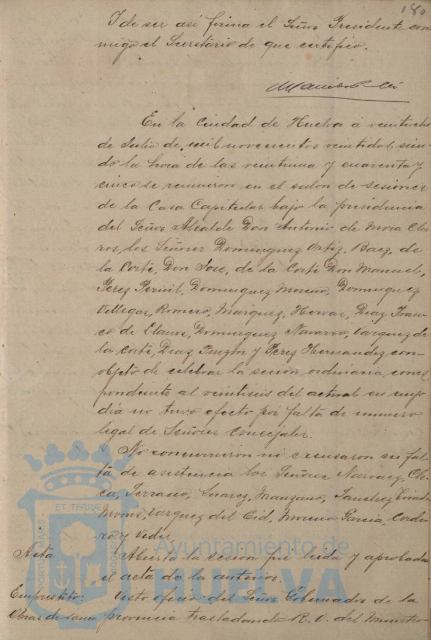 180
I de ser asi firma el Señor Presidente con
migo el Secretario de que certifico.
En la Ciudad de Huelva á veintiocho
de Julio de mil novecientos veintidos, sien
do la hora de las veintiuna y cuarenta y
cinco se reunieron en el salon de sesiones
de la Casa Capitular bajo la presidencia
del Señor Alcalde Don Antonio de Mora Cla
ros, los Señores Dominguez Ortiz, Baez, de
la Corte Don José, de la Corte Don Manuel,
Perez Dominguez Moreno, Dominguez
Villegas, Romero, Marquez, Hervas, Diaz Franc
co de Llanos, Dominguez Navarro, Vazquez de
la Corte, Diaz Pinzon y Perez Hernandez con
objeto de celebrar la sesion ordinaria corres
pondiente al veintiseis del actual en cuyo
dia no tuvo efecto por falta de numero
legal de Señores Concejales.
No concurrieron ni excusaron su fal
ta de asistencia los Señores Narvaez, Cl
Serrano, Suarez, Manzano, Sanchez
Vazquez del Cid, Moreno Garcia, Corde
ro y Vides.
Acta Abierta la sesion fué leida y aprobada
el acta de la anterior.
Emprestito: Visto oficio del Señor Gobernador de la
Obras de provincia trasladando R. O. del Ministro
Ayuntamiento de
HUELVA